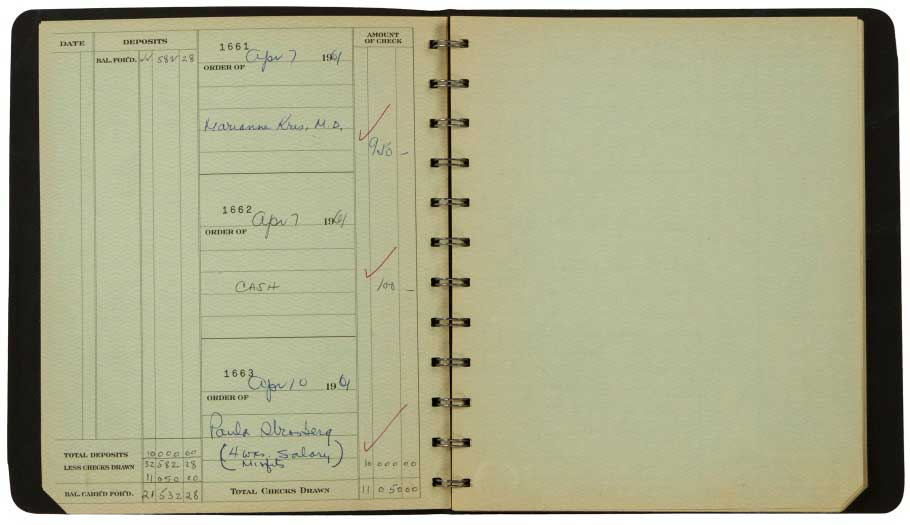 DATE DEPOSITS AMOUNT OF CHECK
BAL. FOR'D. 582 28
1661
Apr 7 1961
ORDER OF
Marianne Kris, M.D.
950 —
1662
Apr 7 1961
ORDER OF
CASH
100 —
1663
Apr 10 1961
ORDER OF
Paula Strasberg
(4 wks. Salary)
Misfits
10 000 00
TOTAL DEPOSITS 10 000 00
LESS CHECKS DRAWN 32 582 28
11 050 00
BAL. CARR'D FOR'D. 21 532 28
TOTAL CHECKS DRAWN 11 050 00